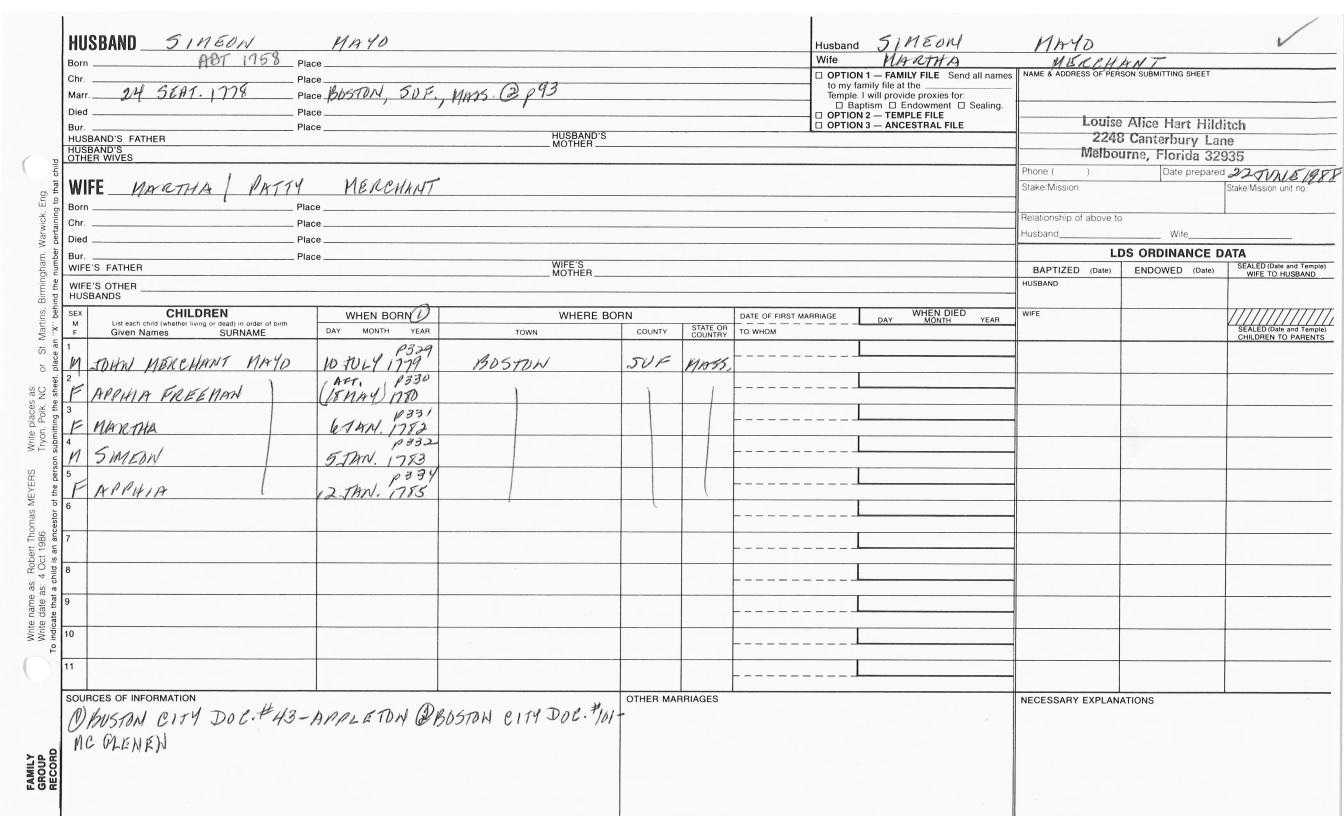 HUSBAND SIMEON MAYO
Born ABT 1758 Place
Chr. Place
Marr. 24 SEAT. 1778 Place BOSTON, SUF., MASS. ② p93
Died Place
Bur. Place
HUSBAND'S FATHER HUSBAND'S MOTHER
HUSBAND'S OTHER WIVES
WIFE MARTHA / PATTY MERCHANT
Born Place
Chr. Place
Died Place
Bur. Place
WIFE'S FATHER WIFE'S MOTHER
WIFE'S OTHER HUSBANDS
Husband SIMEON MAYO ✓
Wife MARTHA MERCHANT
☐ OPTION 1 — FAMILY FILE Send all names
to my family file at the
Temple. I will provide proxies for:
☐ Baptism ☐ Endowment ☐ Sealing.
☐ OPTION 2 — TEMPLE FILE
☐ OPTION 3 — ANCESTRAL FILE
NAME & ADDRESS OF PERSON SUBMITTING SHEET
Louise Alice Hart Hilditch
2248 Canterbury Lane
Melbourne, Florida 32935
Phone ( ) Date prepared 22 JUNE 1988
Stake/Mission Stake/Mission unit no.
Relationship of above to
Husband Wife
LDS ORDINANCE DATA
BAPTIZED (Date) ENDOWED (Date) SEALED (Date and Temple) WIFE TO HUSBAND
HUSBAND
WIFE
SEALED (Date and Temple) CHILDREN TO PARENTS
SEX M F
CHILDREN
List each child (whether living or dead) in order of birth
Given Names SURNAME
WHEN BORN ①
DAY MONTH YEAR
WHERE BORN
TOWN COUNTY STATE OR COUNTRY
DATE OF FIRST MARRIAGE
TO WHOM
WHEN DIED
DAY MONTH YEAR
1 P329
M JOHN MERCHANT MAYO 10 JULY 1779 BOSTON SUF MASS.
2 (AFT. P330
F APPHIA FREEMAN (18 MAY) 1780
3 P331
F MARTHA 6 JAN. 1782
4 P332
M SIMEON 5 JAN. 1783
5 P334
F APPHIA 12 JAN. 1785
6
7
8
9
10
11
SOURCES OF INFORMATION
① BOSTON CITY DOC. #43-APPLETON ② BOSTON CITY DOC. #101-
MC GLENEN
OTHER MARRIAGES
NECESSARY EXPLANATIONS
Write name as Robert Thomas MEYERS Write places as Tryon, Polk, NC or St Martins, Birmingham, Warwick, Eng
Write date as 4 Oct 1986
To indicate that a child is an ancestor of the person submitting the sheet, place an "X" behind the number pertaining to that child
FAMILY
GROUP
RECORD